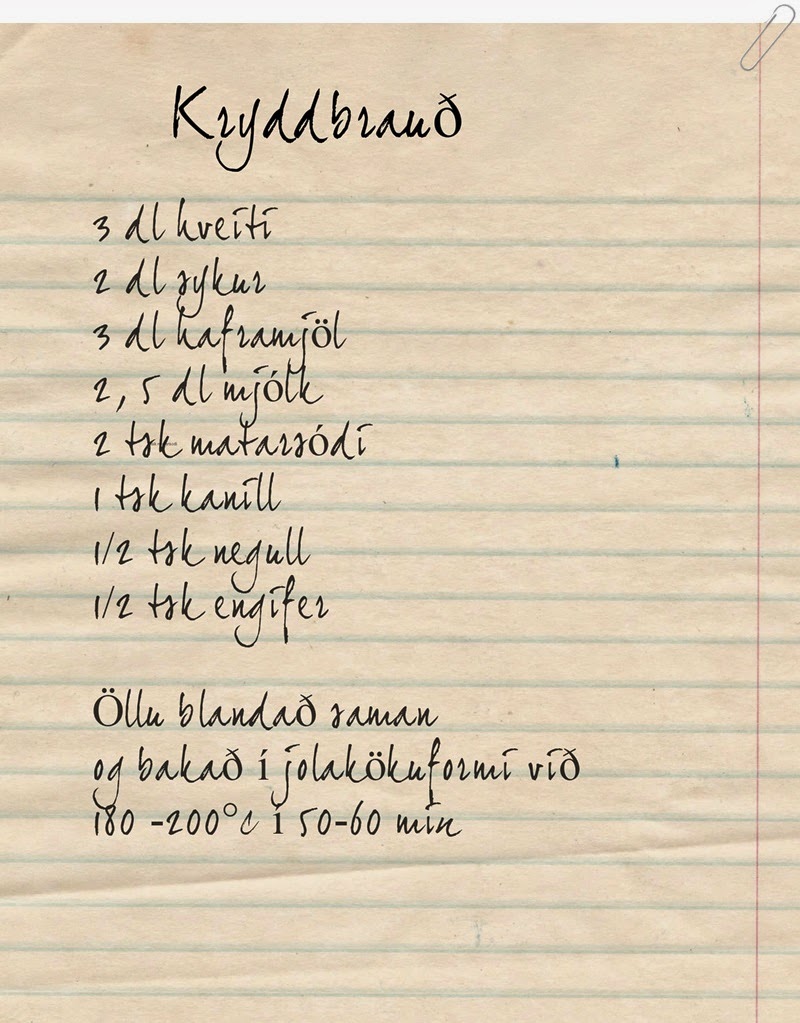 Kryddbrauð
3 dl hveiti
2 dl sykur
3 dl haframjöl
2, 5 dl mjólk
2 tsk matarsódi
1 tsk kanill
1/2 tsk negull
1/2 tsk engifer
Öllu blandað saman
og bakað í jolakökuformi við
180 -200°c í 50-60 mín